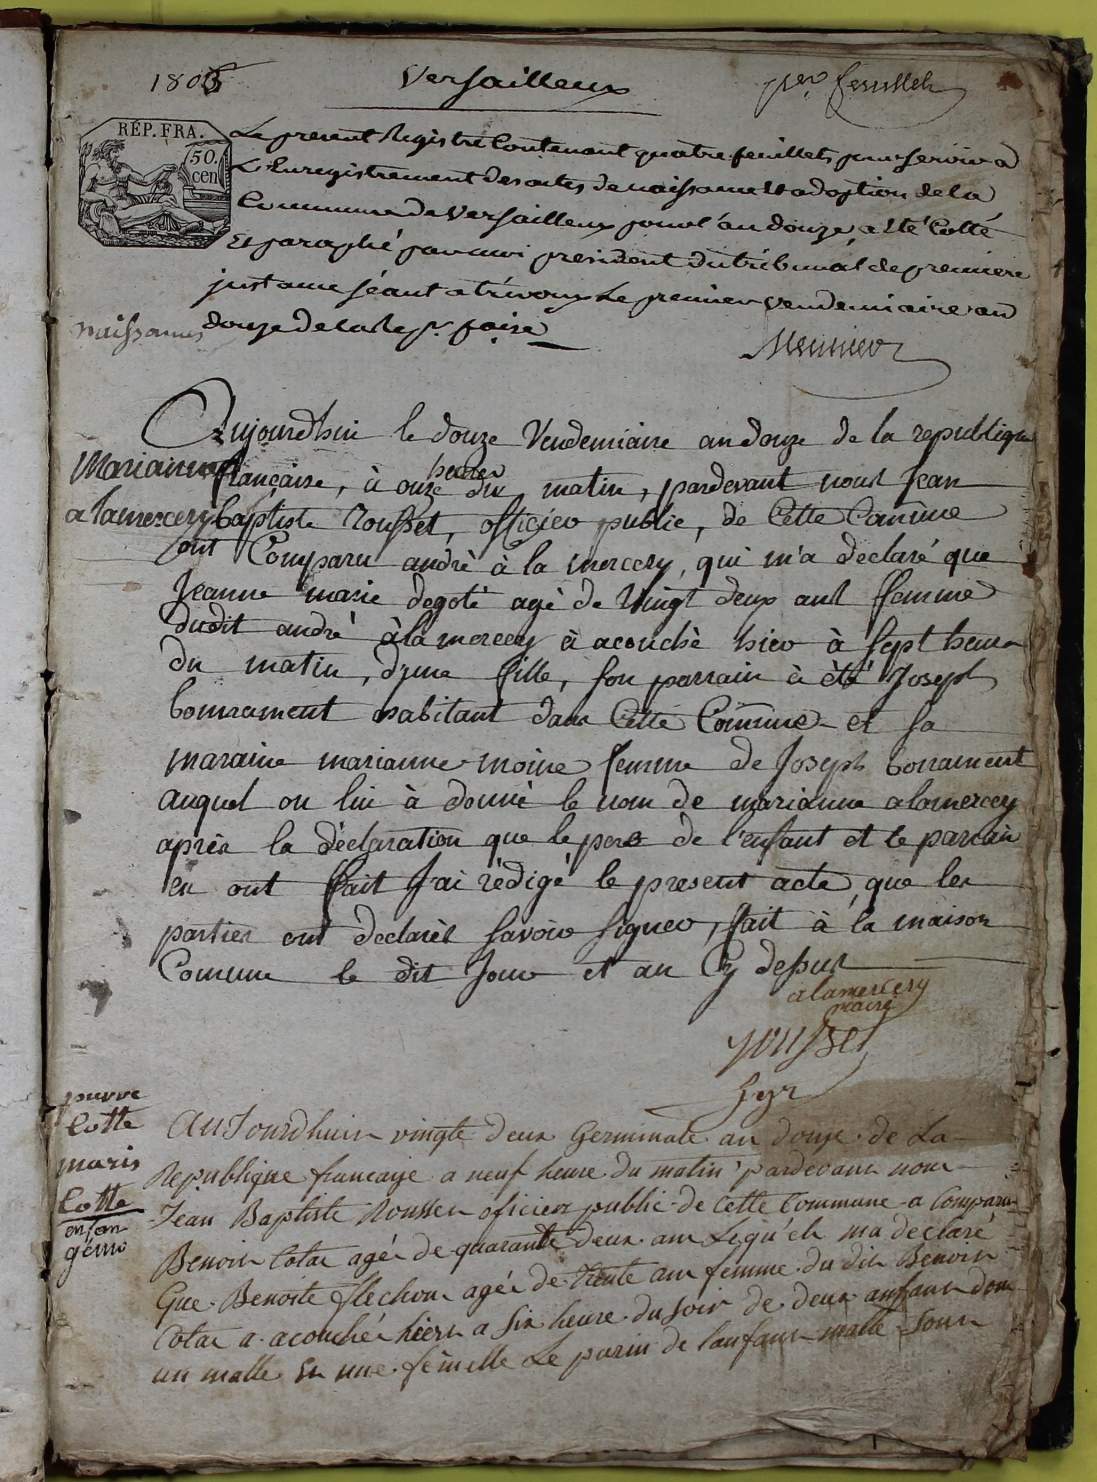 1803
Versailleux
1er feuillet
REP. FRA.
50.
cen
Le present Registre Contenant quatre feuillets pour servir a
L'Enregistrement des actes de naissance et adoption de la
Commune de Versailleux pour l'an douze, a été Cotté
Et paraphé par moi president du tribunal de premiere
justance séant a trévoux Le premier vendemiaire an
douze de la Rep. fçaise
naissances
Meunier
Aujourdhui le douze Vendemiaire an douze de la republique
Marianne
française, à onze heures du matin, pardevant nous Jean
alamercery
baptiste Rousset, officier public, de Cette Comune
ont Comparu andré à la mercery, qui m'a declaré que
Jeanne marie degoté agé de Vingt deux ans femme
dudit andré àlamercery à acouché hier à sept heures
du matin, d'une fille, son parrain à été Joseph
bonrament habitant dans Cette Comune et sa
maraine marianne moine femme de Joseph bonrament
auquel on lui à donné le nom de marianne alamercey
après la déclaration que le pere de l'enfant et le parrain
en ont fait J'ai rédigé le present acte, que les
parties ont declarés savoir signer, fait à la maison
Comune le dit Jour et an Cy dessus
alamercery
maire
rousset
pierre
Cotte
maris
Cotte
enfan
gémo
AuJourdhuir vingte deux Germinale an douze de La
Republique francaise a neuf heure du matin pardevant nous
Jean Baptiste Rousset oficier public de Cette Commune a Comparu
Benoit Cotar agér de quarante deux ans Lequ'el ma declaré
Que Benoite flechon agér de trente ans femme du dit Benoit
Cotar a acouchér hiers a six heure du soir de deux anfans dont
un malle Et une femelle Le parin de lanfant malle